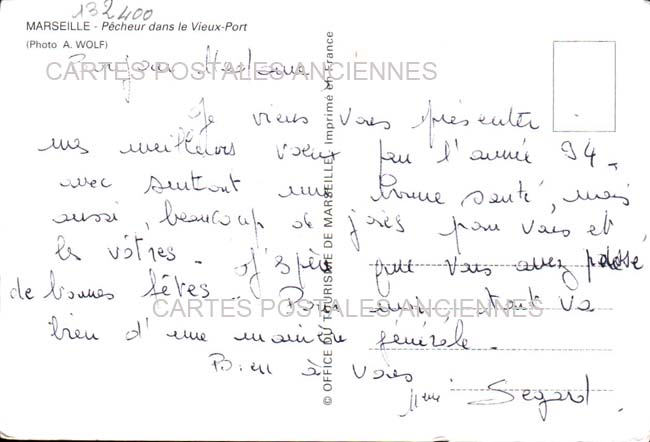 132400
MARSEILLE - Pêcheur dans le Vieux-Port
(Photo A. WOLF)
Bonjour Madame,
CARTES POSTALES ANCIENNES
Je viens vous présenter
mes meilleurs vœux pour l'année 94 -
avec surtout une bonne santé, mais
aussi, beaucoup de joies pour vous et
les vôtres - J'espère que vous avez passé
de bonnes fêtes - Pour moi, tout va
CARTES POSTALES ANCIENNES
bien d'une manière générale -
Bien à vous
Mme Segard
© OFFICE DU TOURISME DE MARSEILLE - Imprimé en France